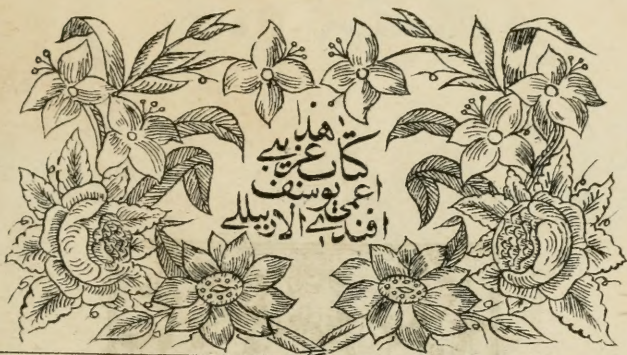 هذا
كتاب غريبي
اعمى يوسف
افندى الاربيللى